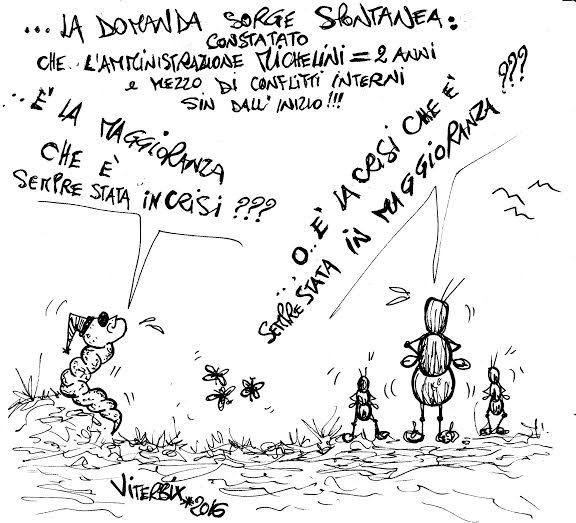 ...LA DOMANDA SORGE SPONTANEA:
CONSTATATO
CHE.. L'AMMINISTRAZIONE MICHELINI = 2 ANNI
E MEZZO DI CONFLITTI INTERNI
SIN DALL'INIZIO!!!
...È LA MAGGIORANZA
CHE È
SEMPRE STATA IN CRISI ???
...O..È LA CRISI CHE È
SEMPRE STATA IN MAGGIORANZA ???
VITERBIX 2016